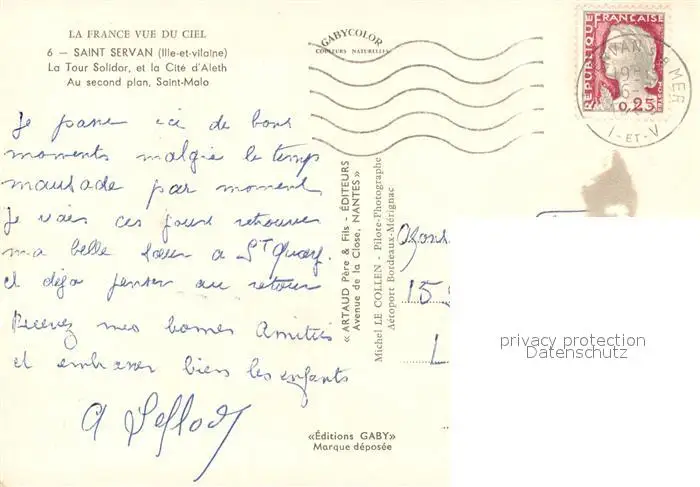 LA FRANCE VUE DU CIEL
6 — SAINT SERVAN (Ille-et-vilaine)
La Tour Solidor, et la Cité d'Aleth
Au second plan, Saint-Malo
GABYCOLOR
COULEURS NATURELLES
RÉPUBLIQUE FRANÇAISE
POSTES
0,25
MER
I-ET-V
Je passe ici de bons
moments malgré le temps
maussade par moment
Je vais ces jours retrouver
ma belle sœur à St Quay.
et déjà penser au retour
Recevez mes bonnes Amitiés
et embrasser bien les enfants
«ARTAUD Père & Fils - ÉDITEURS
Avenue de la Close, NANTES»
Michel LE COLLEN - Pilote-Photographe
Aéroport Bordeaux-Mérignac
15
L
«Éditions GABY»
Marque déposée
privacy protection
Datenschutz